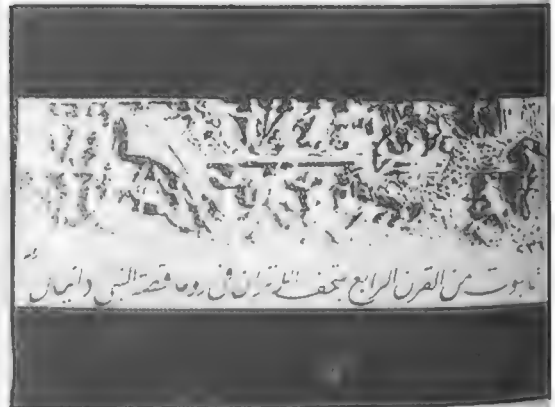 تابوت من القرن الرابع متحف اللاتران في روما قصة النبي دانيال